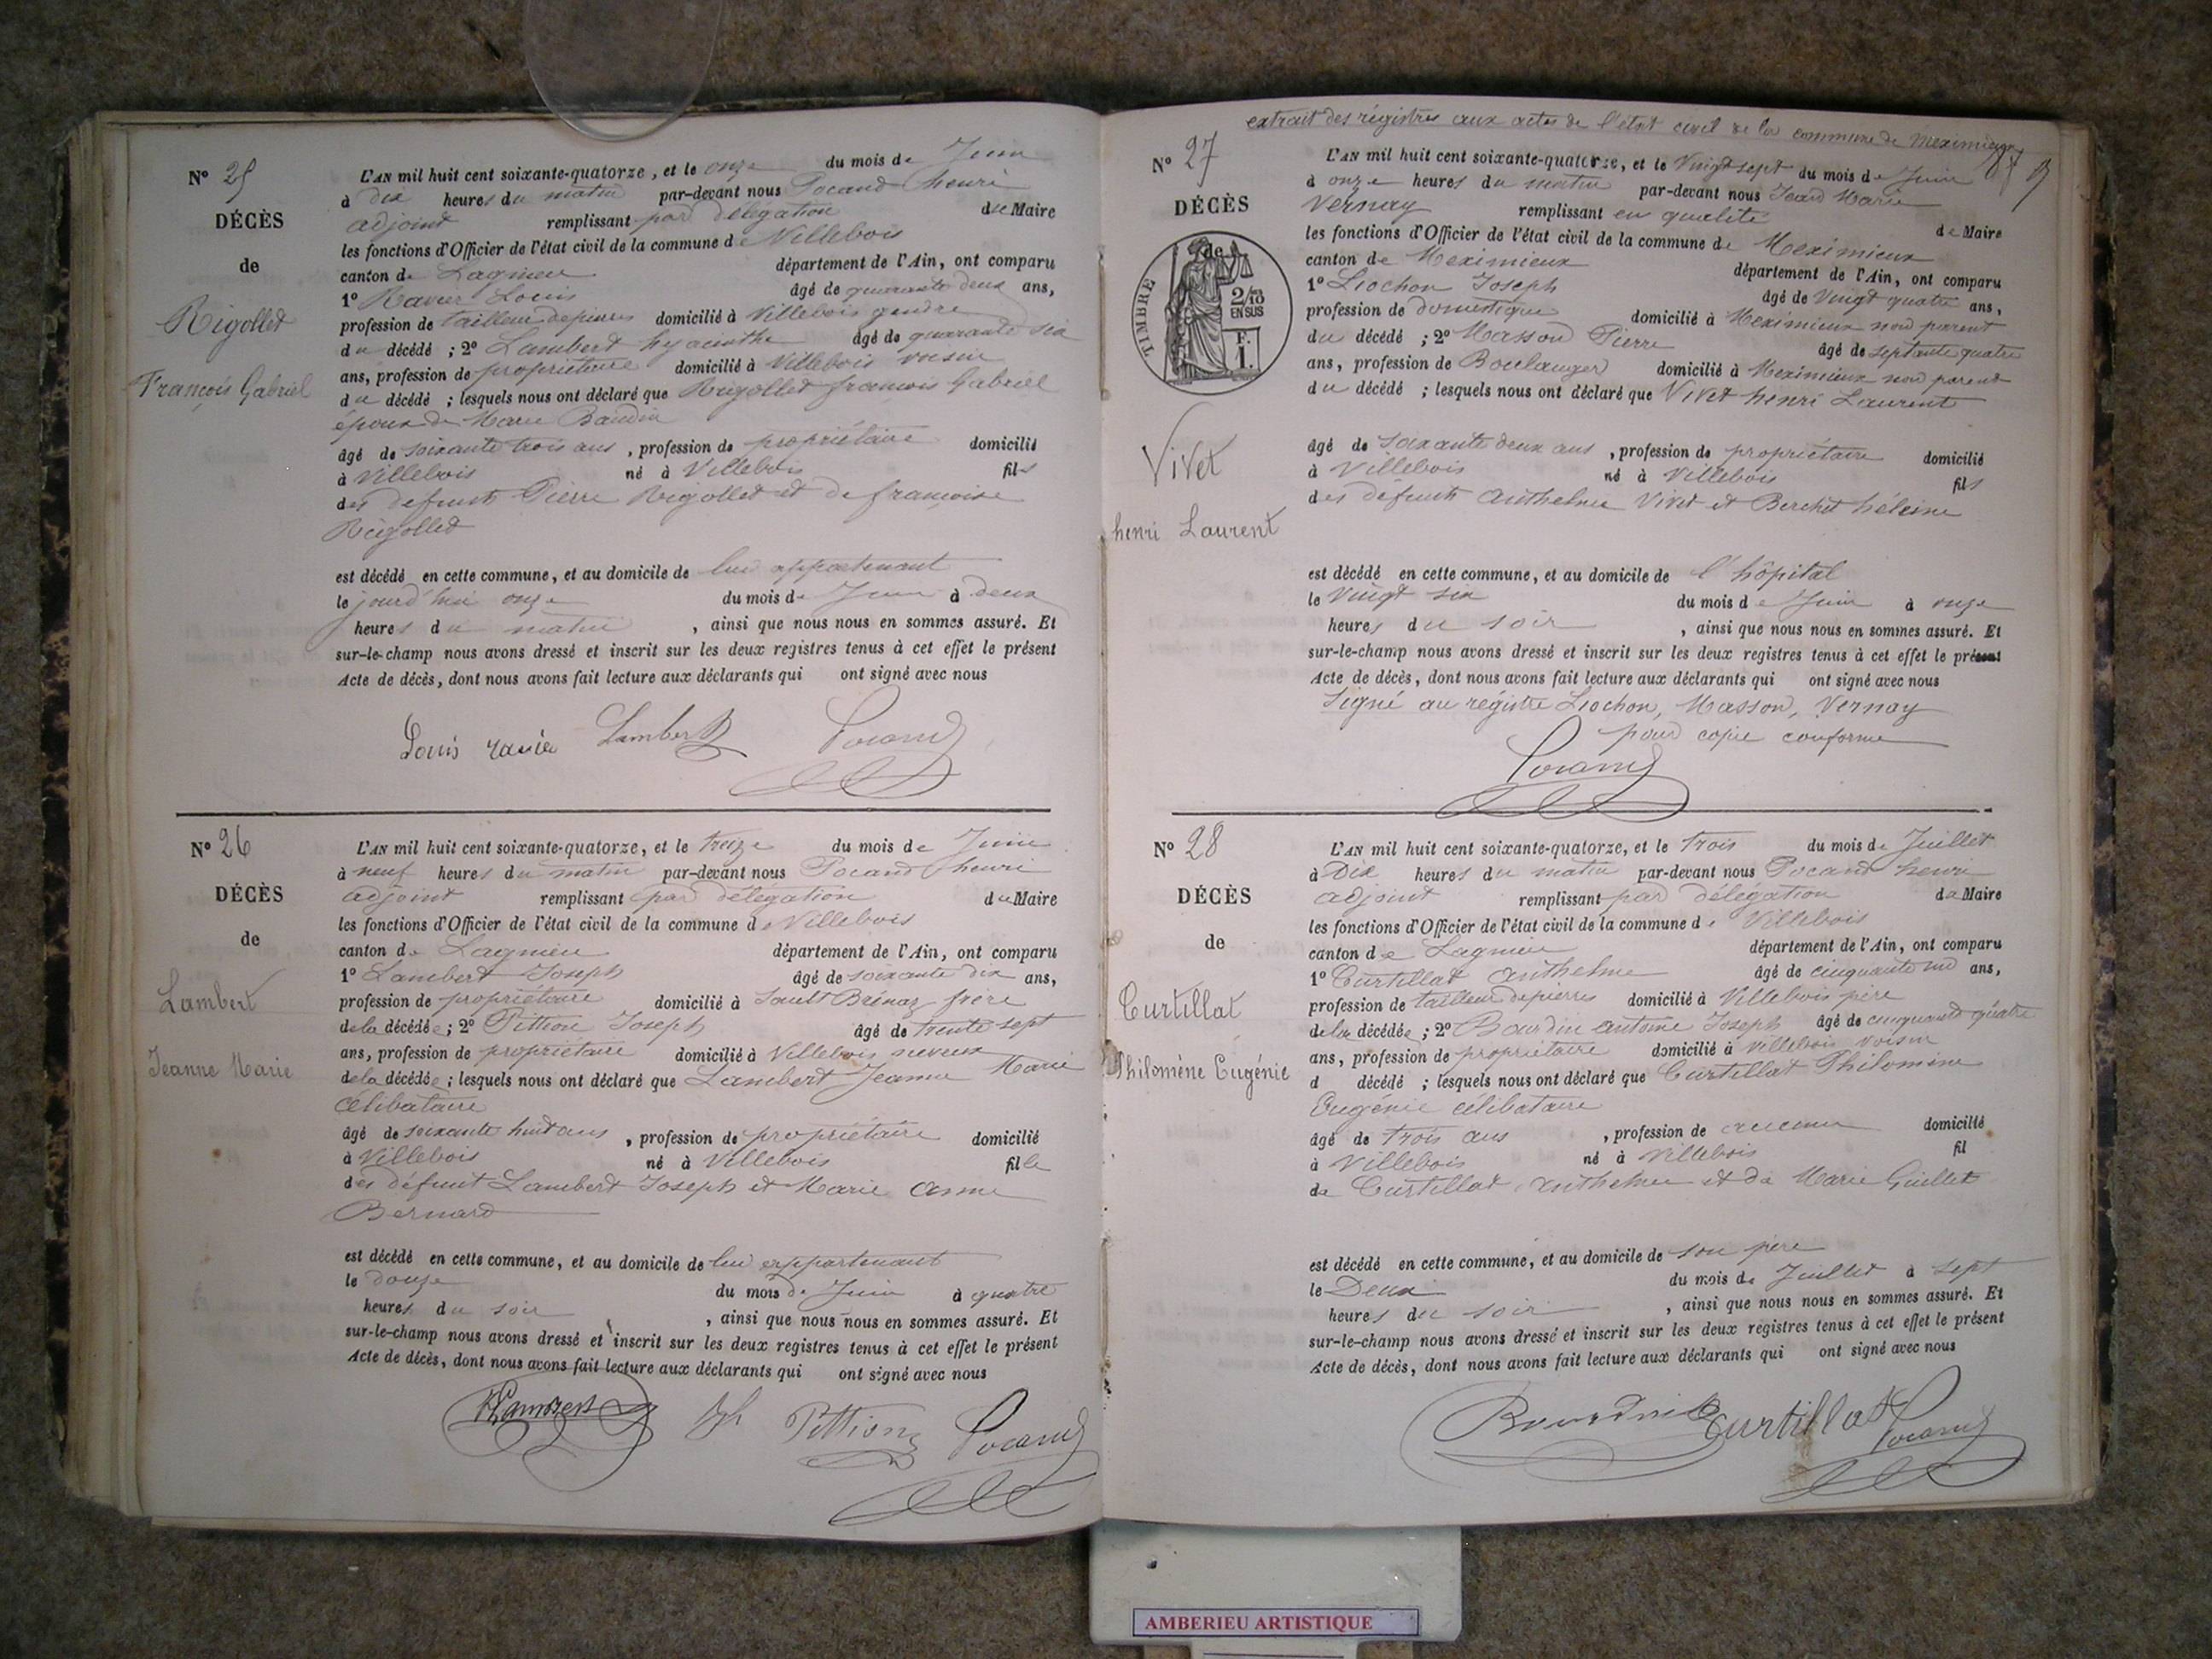 N° 25
DÉCÈS
de
Rigollet
François Gabriel
L'AN mil huit cent soixante-quatorze, et le onze du mois de Juin
à dix heures du matin par-devant nous Pocard henri
adjoint remplissant par délégation du Maire
les fonctions d'Officier de l'état civil de la commune de Villebois
canton de Lagnieu département de l'Ain, ont comparu
1° Xavier Louis âgé de quarante deux ans,
profession de tailleur de pierres domicilié à Villebois gendre
du décédé ; 2° Lambert hyacinthe âgé de quarante six
ans, profession de propriétaire domicilié à Villebois voisin
du décédé ; lesquels nous ont déclaré que Rigollet françois Gabriel
époux de Marie Baudin
âgé de soixante trois ans, profession de propriétaire domicilié
à Villebois né à Villebois fils
des defunts Pierre Rigollet et de françoise
Rigollet
est décédé en cette commune, et au domicile de lui appartenant
le jourd'hui onze du mois de Juin à deux
heures du matin, ainsi que nous nous en sommes assuré. Et
sur-le-champ nous avons dressé et inscrit sur les deux registres tenus à cet effet le présent
Acte de décès, dont nous avons fait lecture aux déclarants qui ont signé avec nous
Louis xavier Lambert Pocard
N° 26
DÉCÈS
de
Lambert
Jeanne Marie
L'AN mil huit cent soixante-quatorze, et le treize du mois de Juin
à neuf heures du matin par-devant nous Pocard henri
adjoint remplissant par délégation du Maire
les fonctions d'Officier de l'état civil de la commune de Villebois
canton de Lagnieu département de l'Ain, ont comparu
1° Lambert Joseph âgé de soixante dix ans,
profession de propriétaire domicilié à Sault Brénaz frère
de la décédée ; 2° Pittion Joseph âgé de trente sept
ans, profession de propriétaire domicilié à Villebois neveux
de la décédée ; lesquels nous ont déclaré que Lambert Jeanne Marie
célibataire
âgé de soixante huit ans, profession de propriétaire domicilié
à Villebois né à Villebois fille
des défunt Lambert Joseph et Marie Anne
Bernard
est décédé en cette commune, et au domicile de lui appartenant
le douze du mois de Juin à quatre
heures du soir, ainsi que nous nous en sommes assuré. Et
sur-le-champ nous avons dressé et inscrit sur les deux registres tenus à cet effet le présent
Acte de décès, dont nous avons fait lecture aux déclarants qui ont signé avec nous
Lambert Jh Pittion Pocard
extrait des régistres aux actes de l'etat civil de la commune de Meximieux
N° 27
DÉCÈS
de
TIMBRE
2/10
EN SUS
F.
1.
Vivet
henri Laurent
L'AN mil huit cent soixante-quatorze, et le Vingt sept du mois de Juin
à onze heures du matin par-devant nous Jean Marie
Vernay remplissant en qualité de Maire
les fonctions d'Officier de l'état civil de la commune de Meximieux
canton de Meximieux département de l'Ain, ont comparu
1° Liochon Joseph âgé de Vingt quatre ans,
profession de domestique domicilié à Meximieux non parent
du décédé ; 2° Masson Pierre âgé de septante quatre
ans, profession de Boulanger domicilié à Meximieux non parent
du décédé ; lesquels nous ont déclaré que Vivet henri Laurent
âgé de soixante deux ans, profession de propriétaire domicilié
à Villebois né à Villebois fils
des défunts Anthelme Vivet et Berchet héleine
est décédé en cette commune, et au domicile de l'hôpital
le Vingt six du mois de Juin à onze
heures du soir, ainsi que nous nous en sommes assuré. Et
sur-le-champ nous avons dressé et inscrit sur les deux registres tenus à cet effet le présent
Acte de décès, dont nous avons fait lecture aux déclarants qui ont signé avec nous
Signé au régistre Liochon, Masson, Vernay
pour copie conforme
Pocard
N° 28
DÉCÈS
de
Curtillat
Philomène Eugénie
L'AN mil huit cent soixante-quatorze, et le trois du mois de Juillet
à Dix heures du matin par-devant nous Pocard henri
adjoint remplissant par délégation du Maire
les fonctions d'Officier de l'état civil de la commune de Villebois
canton de Lagnieu département de l'Ain, ont comparu
1° Curtillat Anthelme âgé de cinquante un ans,
profession de tailleur de pierres domicilié à Villebois père
de la décédée ; 2° Bourdin Antoine Joseph âgé de cinquante quatre
ans, profession de propriétaire domicilié à Villebois voisin
d décédé ; lesquels nous ont déclaré que Curtillat Philomène
Eugénie célibataire
âgé de trois ans, profession de aucune domicilié
à Villebois né à Villebois fil
de Curtillat Anthelme et de Marie Guillet
est décédé en cette commune, et au domicile de son père
le Deux du mois de Juillet à sept
heures du soir, ainsi que nous nous en sommes assuré. Et
sur-le-champ nous avons dressé et inscrit sur les deux registres tenus à cet effet le présent
Acte de décès, dont nous avons fait lecture aux déclarants qui ont signé avec nous
Bourdin Curtillat Pocard
AMBERIEU ARTISTIQUE